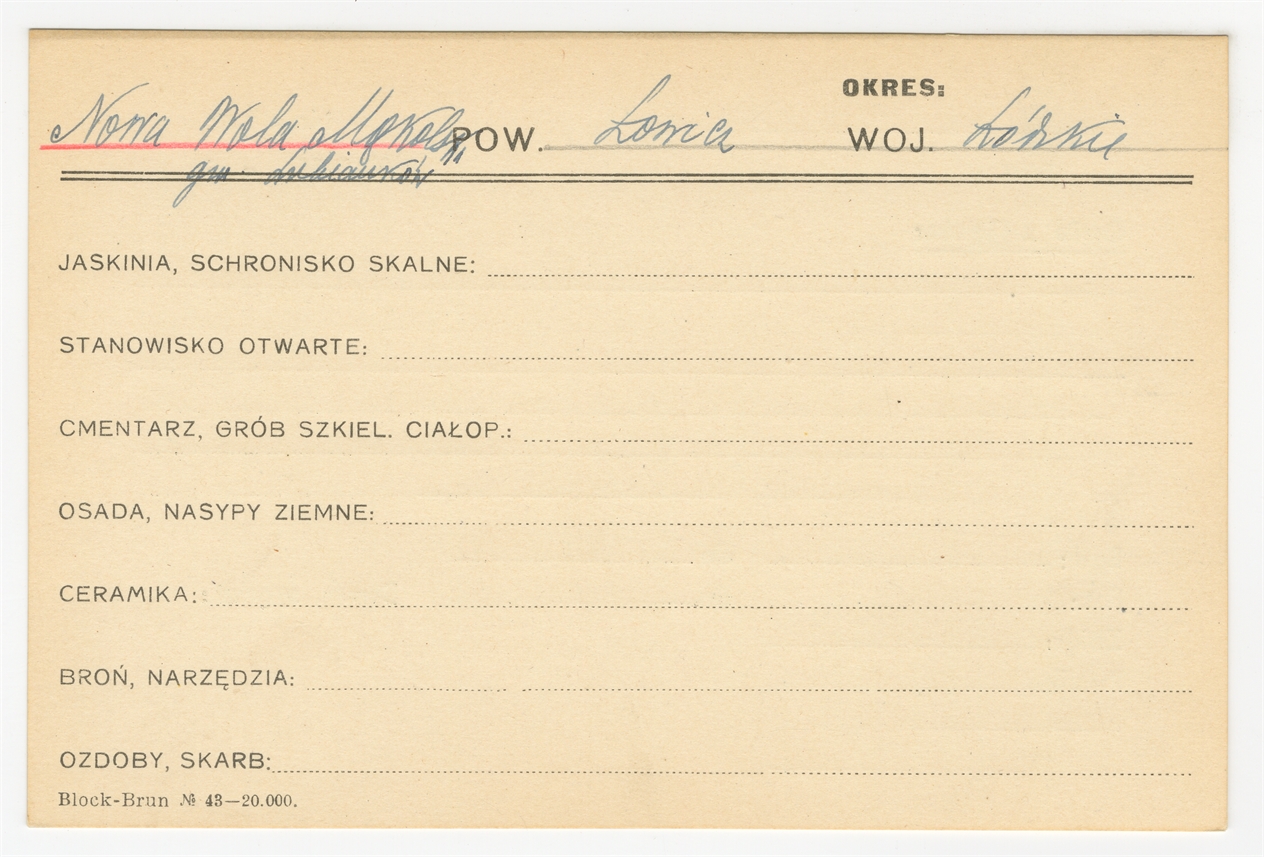 OKRES:
Nowa Wola Mąkolska POW. Łowicz WOJ. Łódzkie
gm. Lubianków
JASKINIA, SCHRONISKO SKALNE:
STANOWISKO OTWARTE:
CMENTARZ, GRÓB SZKIEL. CIAŁOP.:
OSADA, NASYPY ZIEMNE:
CERAMIKA:
BROŃ, NARZĘDZIA:
OZDOBY, SKARB:
Block-Brun № 43—20.000.